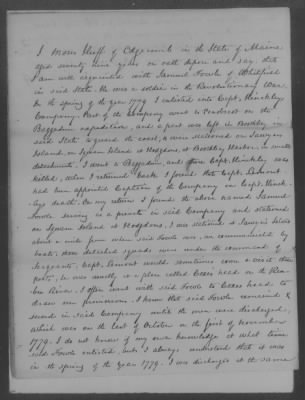 I Moses Huff of Edgecomb in the State of Maine
aged seventy nine years on oath depose and say, that
I am well acquainted with Samuel Fowle of Whitefield
in said State. He was a soldier in the Revolutionary War.
In the spring of the year 1779 I enlisted into Capt. Hinckley
Company. Part of the Company went to Penobscot on the
Bagaduce expedition, and a part was left in Boothbay in
said State to guard the coast, & were stationed on Sawyer
Island, on Squam Island & Hodgdons, at Boothbay Harbor, in small
detachments. I went to Bagaduce, and there Capt. Hinckley was
killed, when I returned back I found that Capt. Lemont
had been appointed Captain of the Company on Capt. Hinck-
leys death. On my return I found the above named Samuel
Fowle serving as a private in said Company and stationed
on Squam Island at Hodgdons, I was stationed at Sawyers Island
about a mile from where said Fowle was, we communicated by
boats, these detached squads were under the command of
Sergeants, Capt. Lemont would sometimes come & visit these
posts, he was mostly at a place called Coxes head on the Ken-
nebec River. I often went with said Fowle to Coxes head to
draw our provisions. I know that said Fowle remained &
served in said Company until the men were discharged,
which was on the last of October or the first of November
1779. I do not know of my own knowledge at what time
said Fowle enlisted, but I always understood that it was
in the spring of the year 1779. I was discharged at the same